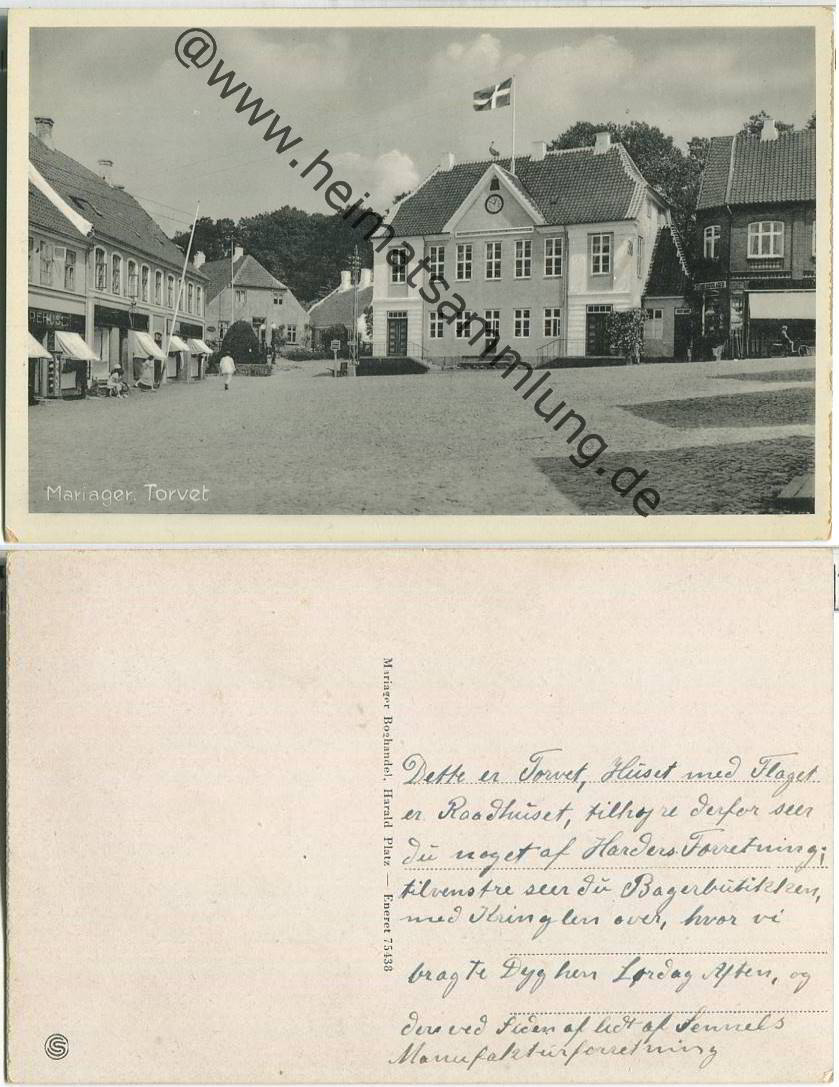 @www.heimatsammlung.de
Mariager. Torvet
Mariager Boghandel, Harald Platz — Eneret 75438
Dette er Torvet, Huset med Flaget
er Raadhuset, tilhøjre derfor seer
du noget af Harders Forretning;
tilvenstre seer du Bagerbutikken,
med Kringlen over, hvor vi
bragte Dyg hen Lørdag Aften, og
der ved Siden af lidt af Fennels
Manufakturforretning